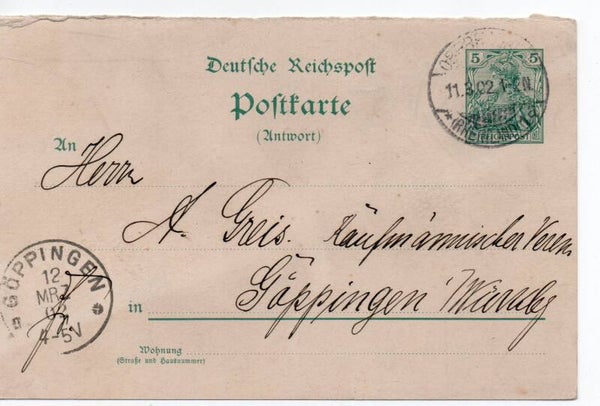 Deutsche Reichspost
Postkarte
(Antwort)
5 5
11.3.02.1-2N
(RHEINL
REICHSPOST
An
Herrn
A. Greis. Kaufmännischer Verein
Göppingen Württbg
in
Wohnung
(Straße und Hausnummer)
GÖPPINGEN
12
MRZ
02
4-5N